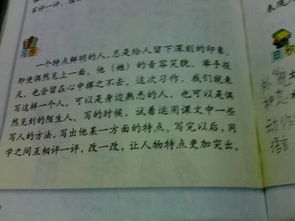 一个特点鲜明的人，总是给人留下深刻的印象，
即使偶然见上一面，他（她）的音容笑貌、举手投
足，也会留在心中挥之不去。这次习作，我们就来
写这样一个人，可以是身边熟悉的人，也可以是偶
然见到的陌生人。写的时候，试着运用课文中一些
写人的方法，写出他某一方面的特点。写完以后，同
学之间互相评一评，改一改，让人物特点更加突出。
动作
语言